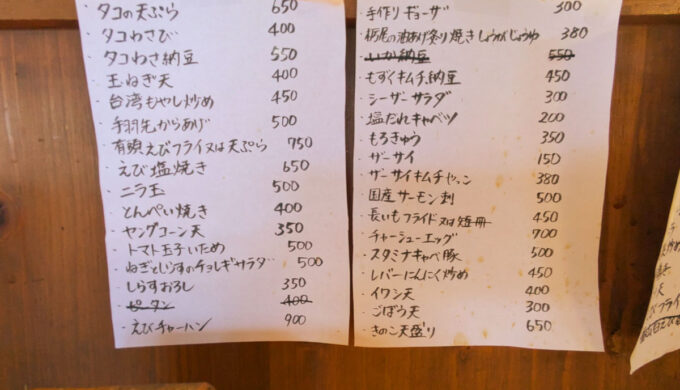 ・タコの天ぷら 650
・タコわさび 400
・タコわさ納豆 550
・玉ねぎ天 400
・台湾もやし炒め 450
・手羽先からあげ 500
・有頭えびフライ又は天ぷら 750
・えび塩焼き 650
・ニラ玉 500
・とんぺい焼き 400
・ヤングコーン天 350
・トマト玉子いため 500
・ねぎとしらすのチョレギサラダ 500
・しらすおろし 350
・ピータン 400
・えびチャーハン 900
・手作りギョーザ 300
・栃尾の油あげ炙り焼きしょうがじょうゆ 380
・いか納豆 550
・もずくキムチ納豆 450
・シーザーサラダ 300
・塩だれキャベツ 200
・もろきゅう 350
・ザーサイ 150
・ザーサイキムチャッコ 380
・国産サーモン刺 500
・長いもフライド又は短冊 450
・チャーシューエッグ 700
・スタミナキャベ豚 500
・レバーにんにく炒め 450
・イワシ天 400
・ごぼう天 300
・きのこ天盛り 650